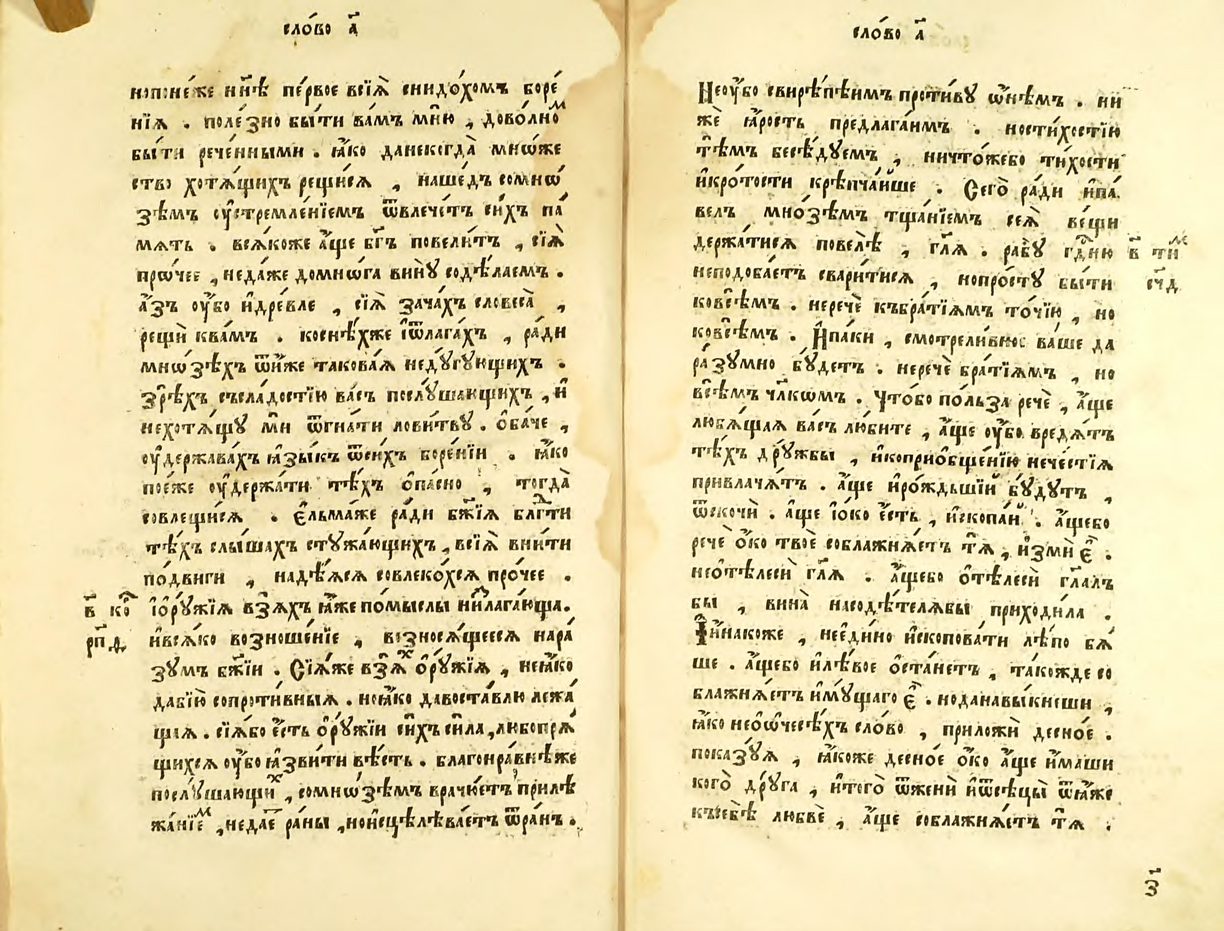 сло́во а҃
нопоне́же нн҃ѣ пе́рвое всїѧ̀ снидо́хомъ боре́
нїѧ . поле́зно бы́ти ва́мъ мню̀ , дово́лноⷨ
бы́ти рече́нными . ꙗ҆́ко данекогда̀ мно́же
ство хотѧ́щихъ рещи́сѧ , наше́дъ сомнѡ́
зѣмъ оу҆стремле́нїемъ ѿвлече́тъ си́хъ па́
мѧть . всѧ́коже а҆́ще бг҃ъ повели́тъ , сїѧ̀
прѡ́чее , неда́же домнѡ́га винꙋ̀ содѣ́лаемъ .
а҆́зъ оу҆́бо и҆дре́вле , сїѧ̀ зача́хъ словеса̀ ,
рещѝ ква́мъ . коснѣ́хже і҆ѿлага́хъ , ра́ди
мнѡ́зѣхъ ѿни́же такова́ѧ недꙋ́гꙋющихъ .
зрѣ́хъ съсла́достїю ва́съ послꙋ́шающихъ , и҆
нехотѧ́щꙋ мѝ ѿгна́ти лови́твꙋ . ѻ҆ба́че ,
оу҆держава́хъ ꙗ҆зы́къ ѿси́хъ боре́нїи . ꙗ҆́ко
пое́же оу҆держа́ти тѣ́хъ ѻ҆па́сно , тогда̀
совлещи́сѧ . є҆льма́же ра́ди бж҃їѧ блгⷣти
тѣ́хъ слы́шахъ стꙋжа́ющихъ , всїѧ̀ вни́ти
по́двиги , надѣ́ѧсѧ совлеко́хсѧ про́чее .
в҃ коⷬ҇ і҆ѻ҆рꙋ́жїѧ взѧ́хъ ꙗ҆́же по́мыслы низлага́юща.
рп҃д. и҆всѧ́ко возноше́нїе , возносѧ́щеесѧ нара́
зꙋмъ бж҃їи . Сїѧ́же взѧⷯ ѻ҆рꙋ́жїѧ , неꙗ҆́ко
дабїю̀ сопроти́вныѧ . ноꙗ҆́ко давоста́влю лежа́
щаѧ . сїѧ́бо є҆́сть ѻ҆рꙋ́жїи си́хъ си́ла, любопрѧ́
щихсѧ оу҆́бо ꙗ҆́звити вѣ́сть . благонра́внѣже
послꙋ́шающиⷯ , сомнѡ́зѣмъ врачю́етъ прилѣ
жа́нїеⷨ , недае́ ра́ны , нои҆сцѣлѣва́етъ ѿра́нъ .
сло́во а҃
Неоу҆́бо свирѣ́пѣимъ проти́вꙋ ѡ҆́нѣмъ . ни
жѐ ꙗ҆́рость предлага́имъ . ности́хостїю
тѣ́мъ бесѣ́дꙋемъ , ничто́жебо ти́хости
и҆кро́тости крѣпча́йше . Сего̀ ра́ди и҆па́
велъ мно́зѣмъ тща́нїемъ сеѧ̀ ве́щи
держа́тисѧ повелѣ̀ , гл҃ѧ . рабꙋ̀ гдⷭ҇ню в҃ тиⷨ
неподоба́етъ свари́тисѧ , нопро́стꙋ бы́ти сч҃д
ковсѣ́мъ . неречѐ къбра́тїѧмъ то́чїю , но
ковсѣ́мъ . И҆па́ки , смотрели́вное ва́ше да
ра́зꙋмно бꙋ́детъ . неречѐ бра́тїѧмъ , но
всѣ́мъ чл҃кѡмъ . Что́бо по́льза речѐ , а҆́ще
лю́бѧщаѧ ва́съ лю́бите , а҆́ще оу҆́бо вредѧ́тъ
тѣ́хъ дрꙋ́жбы , и҆коприѻ҆бще́нїю нече́стїѧ
привлача́тъ . а҆́ще и҆ро́ждьшїи бꙋ́дꙋтъ ,
ѿскочѝ . а҆́ще і҆ѻ́ко є҆́сть , и҆скопа́й . а҆́щебо
речѐ ѻ҆́ко твоѐ соблажнѧ́етъ тѧ̀ , и҆змѝ є҆̀ .
неѻ҆тѣлесѝ гл҃ѧ . а҆́щебо ѻ҆тѣлесѝ гл҃алъ
бы , вина̀ насодѣ́телѧбы приходи́ла .
І҆и҆на́коже , неє҆ди́но и҆скопова́ти лѣ́по бѧ́
ше . а҆́щебо и҆лѣ́вое ѻ҆ста́нетъ , тако́жде со
блажнѧ́етъ и҆мꙋ́щаго є҆̀ . нода́навы́кнеши ,
ꙗ҆́ко неѻ҆ѻ҆чесѣ́хъ сло́во , приложѝ десно́е .
показꙋ́ѧ , ꙗ҆́коже десно́е ѻ҆́ко а҆́ще и҆́маши
кого̀ дрꙋ́га , и҆того̀ ѿженѝ и҆ѿсѣцы̀ ѿꙗ҆́же
късебѣ̀ любвѐ , а҆́ще соблажнѧ́етъ тѧ̀ .
з҃